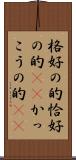 格好の的恰好
の的((かっ
こうの的((